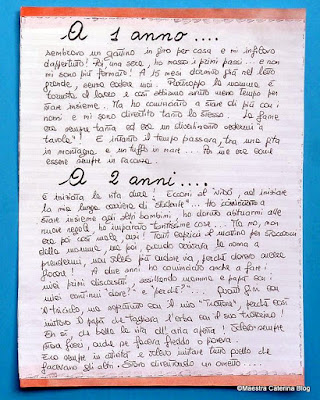 A 1 anno....
sembravo un gattino in giro per casa e mi infilavo
dappertutto! Poi, una sera, ho mosso i primi passi... e non
mi sono più fermato! A 15 mesi dormivo già nel letto
grande, senza cadere mai. Purtroppo la mamma è
tornata al lavoro e così abbiamo avuto meno tempo per
stare insieme. Ma ho cominciato a stare di più con i
nonni e mi sono divertito tanto lo stesso. La fame
era sempre tanta ed era un divertimento vedermi a
tavola"! E intanto il tempo passava, tra una gita
in montagna e un tuffo in mare... Per me era come
essere sempre in vacanza.
A 2 anni....
è iniziata la vita dura! Eccomi al nido, ad iniziare
la mia lunga carriera di "studente"... Ho cominciato a
stare insieme agli altri bambini, ho dovuto abituarmi alle
nuove regole, ho imparato tantissime cose... Ma no, non
era poi così male, anzi! Tanti capricci al mattino per staccarmi
dalla mamma, ma poi, quando arrivava la nonna a
prendermi, non volevo più andare via, perché dovevo ancora
giocare! A due anni ho cominciato anche a fare i
miei primi discorsi, assillando mamma e papà con i
miei continui "dove?" e "perché?"... Guai fini con
il triciclo, ma soprattutto con il mio "trattore", perché così
imitavo il papà che tagliava l'erba con il suo trattorino!
Eh sì, che bella la vita all'aria aperta! Volevo sempre
stare fuori, anche se faceva freddo o pioveva.
Ero sempre in attività e volevo imitare tutto quello che
facevano gli altri. Stavo diventando un ometto....
©Maestra Caterina Blog